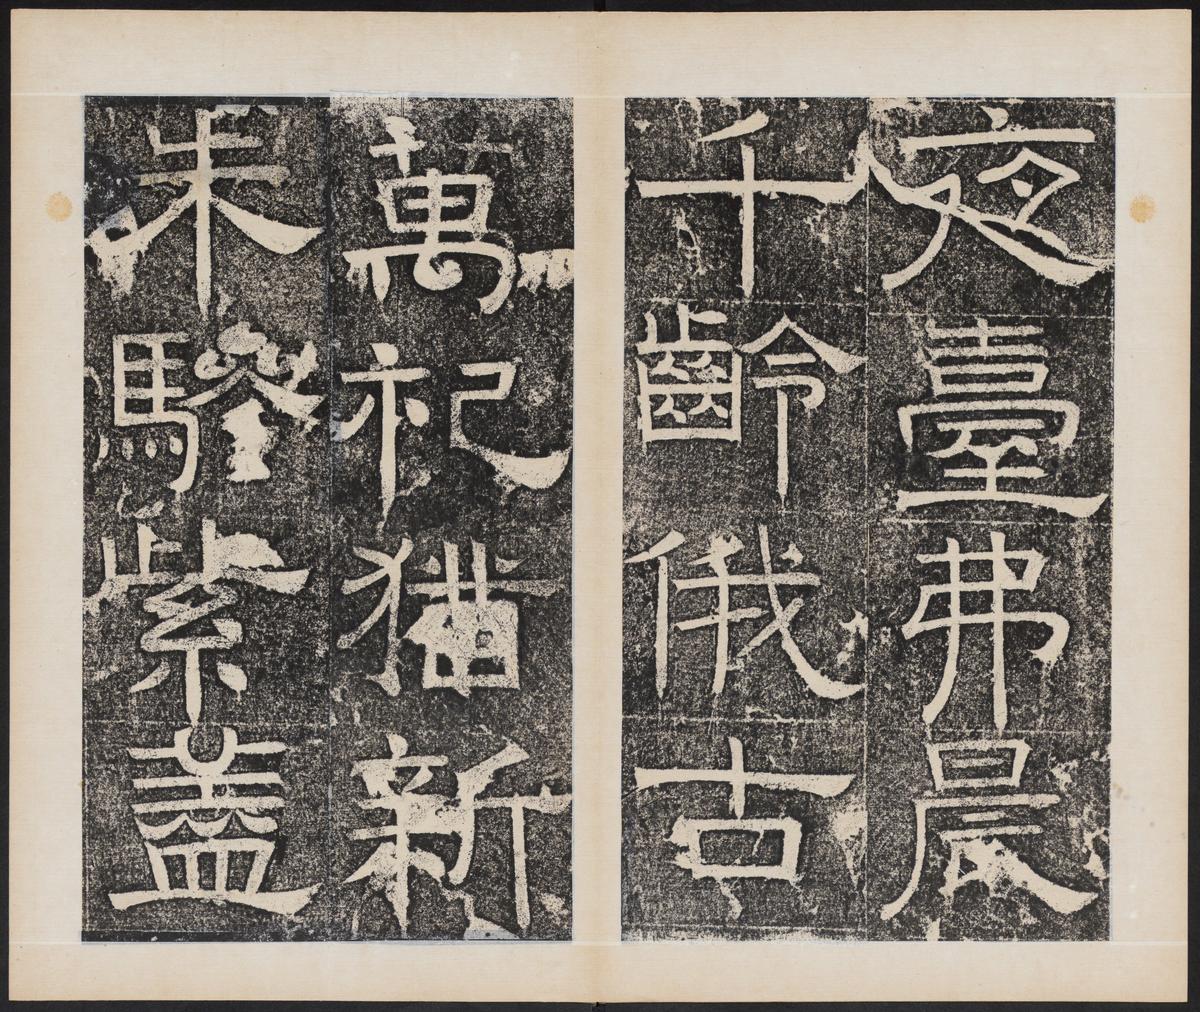 夜臺弗晨
千齡俄古
萬祀猶新
朱驂紫蓋